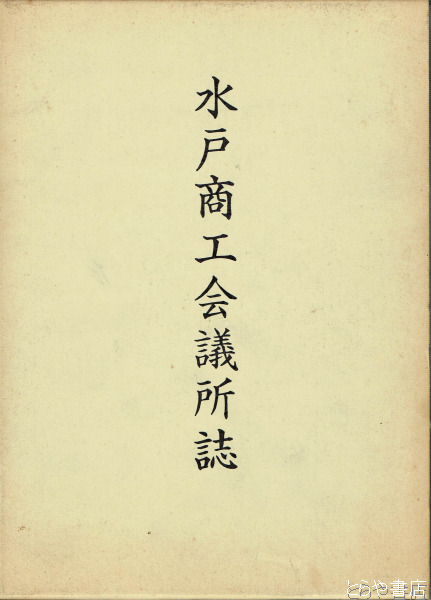 水戸商工会議所誌
とらや書店